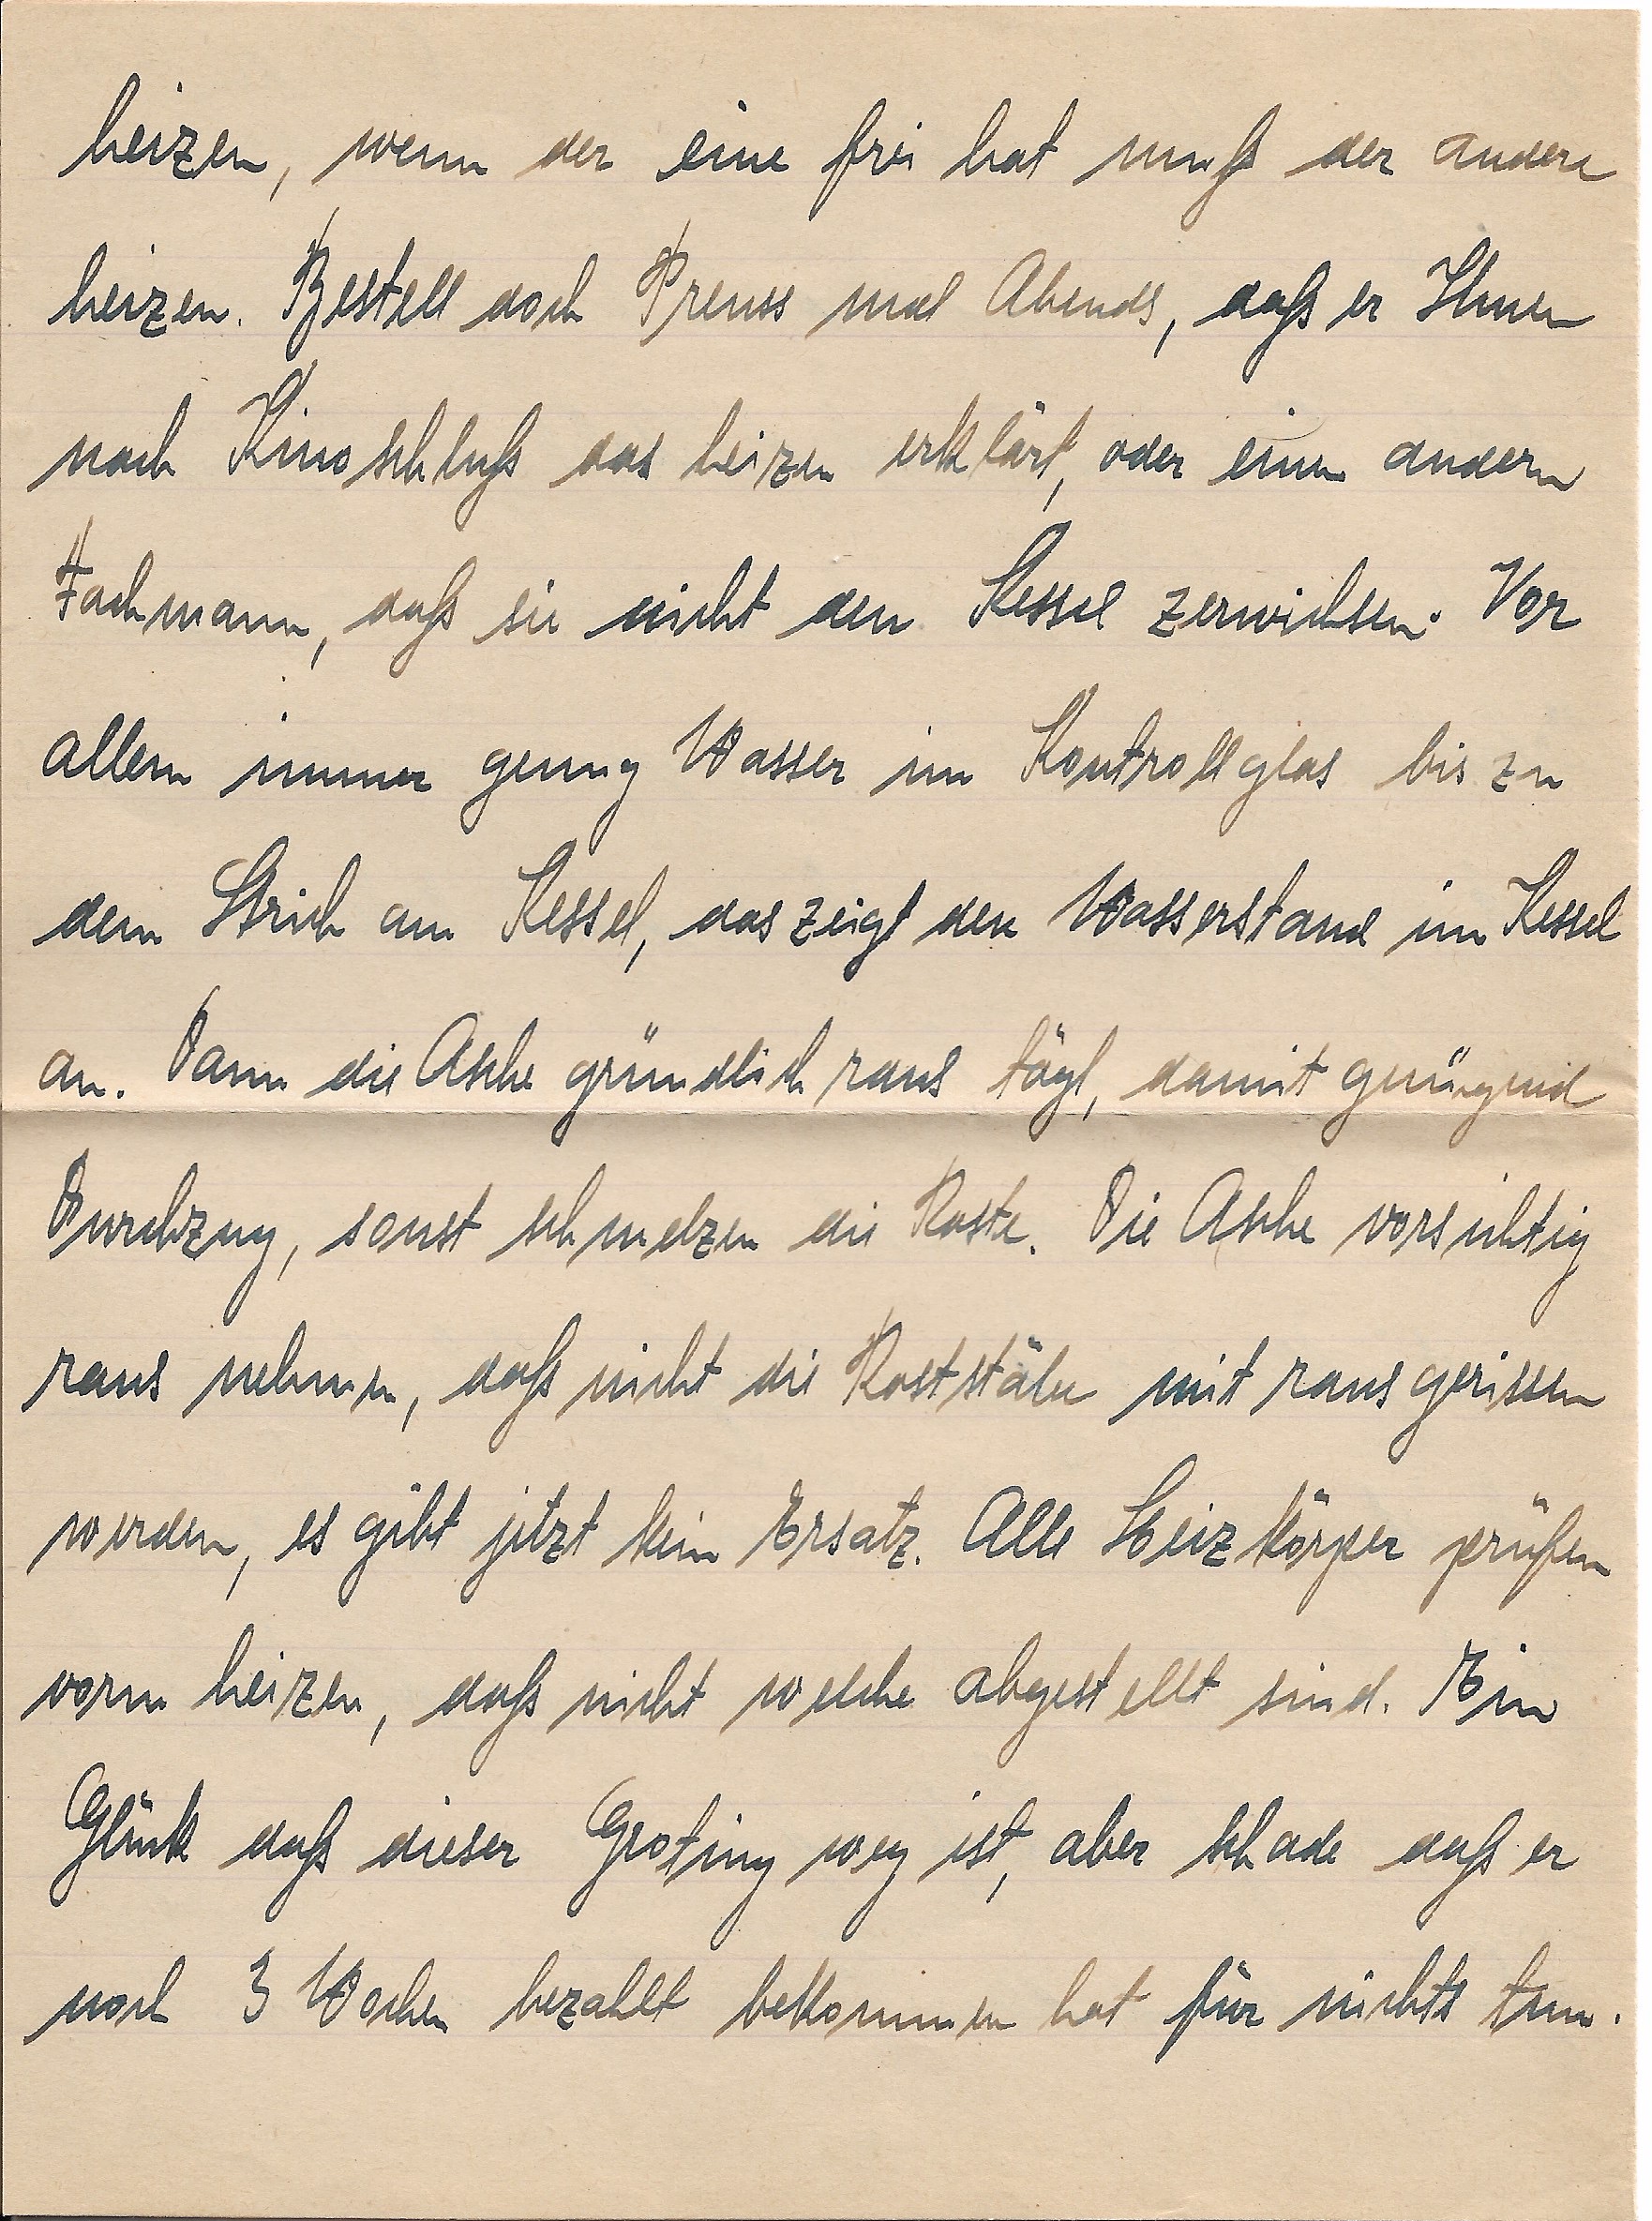 heizen, wenn der eine frei hat muß der andere
heizen. Bestell doch Preuss mal Abends, daß er Ihnen
nach Kinoschluß das heizen erklärt, oder einen andern
Fachmann, daß sie nicht den Kessel zerwichsen. Vor
allem immer genug Wasser im Kontrollglas bis zu
dem Strich am Kessel, das zeigt den Wasserstand im Kessel
an. Dann die Asche gründlich raus tägl, damit genügend
Durchzug, sonst schmelzen die Roste. Die Asche vorsichtig
raus nehmen, daß nicht die Roststäbe mit rausgerissen
werden, es gibt jetzt kein Ersatz. Alle Heizkörper prüfen
vorm heizen, daß nicht welche abgestellt sind. Ein
Glück daß dieser Groting weg ist, aber schade daß er
noch 3 Wochen bezahlt bekommen hat für nichts tun.